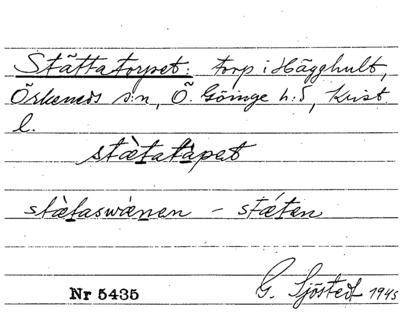 Stättatorpet: torp i Hägghult,
Örkeneds s:n, Ö. Göinge h:d, Krist.
l.
stæ̀tatàpet
stæ̀taswænen – stǽten
Nr 5435 G. Sjöstedt 1945